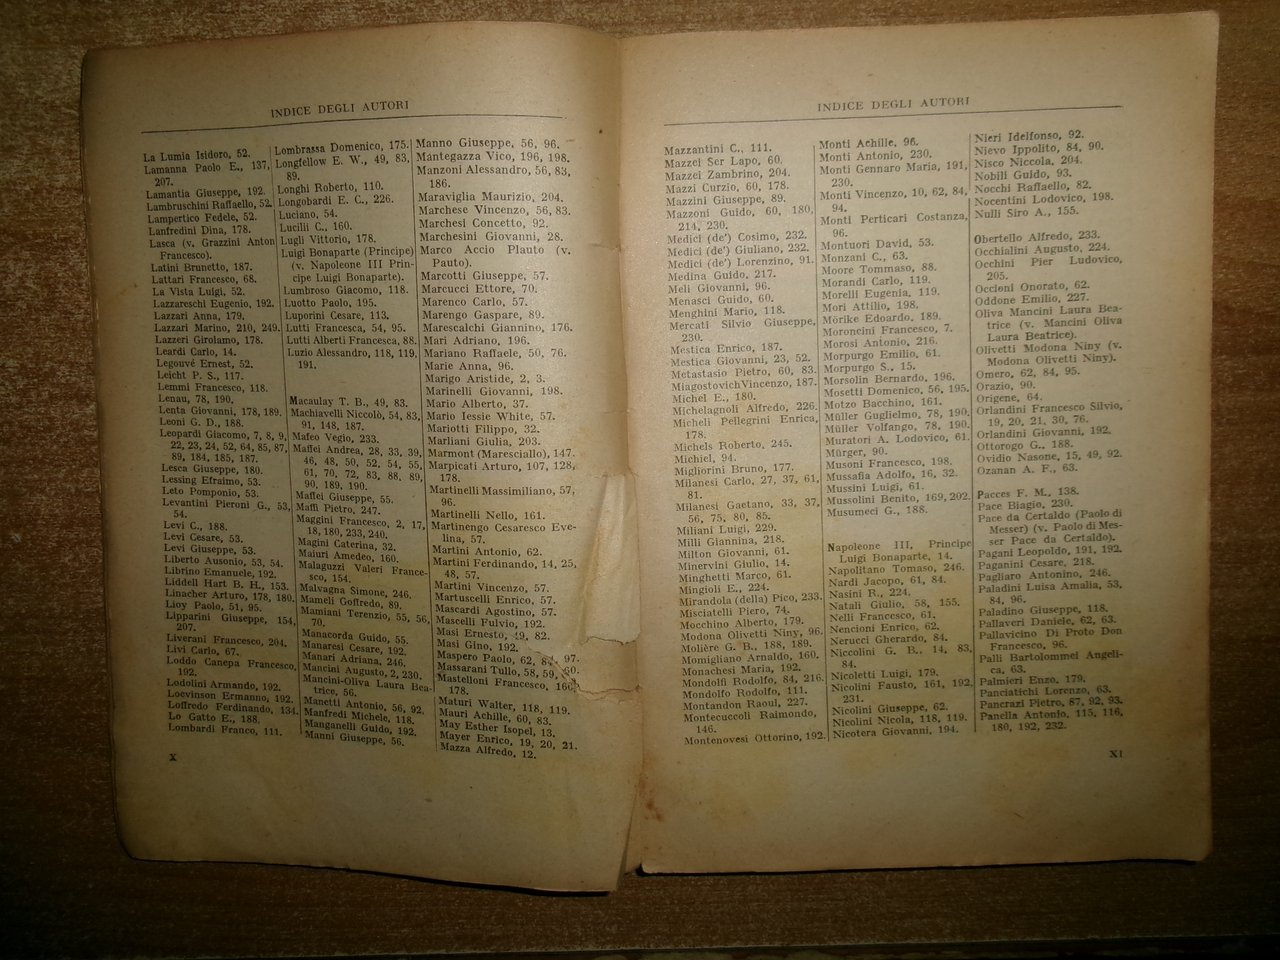 INDICE DEGLI AUTORI
La Lumia Isidoro, 52.
Lamanna Paolo E., 137,
207.
Lamantia Giuseppe, 192.
Lambruschini Raffaello, 52.
Lampertico Fedele, 52.
Lanfredini Dina, 178.
Lasca (v. Grazzini Anton
Francesco).
Latini Brunetto, 187.
Lattari Francesco, 68.
La Vista Luigi, 52.
Lazzareschi Eugenio, 192.
Lazzari Anna, 179.
Lazzari Marino, 210, 249.
Lazzeri Girolamo, 178.
Leardi Carlo, 14.
Legouvé Ernest, 52.
Leicht P. S., 117.
Lemmi Francesco, 118.
Lenau, 78, 190.
Lenta Giovanni, 178, 189.
Leoni G. D., 188.
Leopardi Giacomo, 7, 8, 9,
22, 23, 24, 52, 64, 85, 87,
89, 184, 185, 187.
Lesca Giuseppe, 180.
Lessing Efraimo, 53.
Leto Pomponio, 53.
Levantini Pieroni G., 53,
54.
Levi C., 188.
Levi Cesare, 53.
Levi Giuseppe, 53.
Liberto Ausonio, 53, 54.
Librino Emanuele, 192.
Liddell Hart B. H., 153.
Linacher Arturo, 178, 180.
Lioy Paolo, 51, 95.
Lipparini Giuseppe, 154,
207.
Liverani Francesco, 204.
Livi Carlo, 67.
Loddo Canepa Francesco,
192.
Lodolini Armando, 192.
Loevinson Ermanno, 192.
Loffredo Ferdinando, 134.
Lo Gatto E., 188.
Lombardi Franco, 111.
Lombrassa Domenico, 175.
Longfellow E. W., 49, 83,
89.
Longhi Roberto, 110.
Longobardi E. C., 226.
Luciano, 54.
Lucilii C., 160.
Lugli Vittorio, 178.
Luigi Bonaparte (Principe)
(v. Napoleone III Prin-
cipe Luigi Bonaparte).
Lumbroso Giacomo, 118.
Luotto Paolo, 195.
Luporini Cesare, 113.
Lutti Francesca, 54, 95.
Lutti Alberti Francesca, 88.
Luzio Alessandro, 118, 119,
191.
Macaulay T. B., 49, 83.
Machiavelli Niccolò, 54, 83,
91, 148, 187.
Mafeo Vegio, 233.
Maffei Andrea, 28, 33, 39,
46, 48, 50, 52, 54, 55,
61, 70, 72, 83, 88, 89,
90, 189, 190.
Maffei Giuseppe, 55.
Maffi Pietro, 247.
Maggini Francesco, 2, 17,
18, 180, 233, 240.
Magini Caterina, 32.
Maiuri Amedeo, 160.
Malaguzzi Valeri France-
sco, 154.
Malvagna Simone, 246.
Mameli Goffredo, 89.
Mamiani Terenzio, 55, 56,
70.
Manacorda Guido, 55.
Manaresi Cesare, 192.
Manari Adriana, 246.
Mancini Augusto, 2, 230.
Mancini-Oliva Laura Bea-
trice, 56.
Manetti Antonio, 56, 92.
Manfredi Michele, 118.
Manganelli Guido, 192.
Manni Giuseppe, 56.
Manno Giuseppe, 56, 96.
Mantegazza Vico, 196, 198.
Manzoni Alessandro, 56, 83,
186.
Maraviglia Maurizio, 204.
Marchese Vincenzo, 56, 83.
Marchesi Concetto, 92.
Marchesini Giovanni, 28.
Marco Accio Plauto (v.
Pauto).
Marcotti Giuseppe, 57.
Marcucci Ettore, 70.
Marenco Carlo, 57.
Marengo Gaspare, 89.
Marescalchi Giannino, 176.
Mari Adriano, 196.
Mariano Raffaele, 50, 76.
Marie Anna, 96.
Marigo Aristide, 2, 3.
Marinelli Giovanni, 198.
Mario Alberto, 37.
Mario Iessie White, 57.
Mariotti Filippo, 32.
Marliani Giulia, 203.
Marmont (Maresciallo), 147.
Marpicati Arturo, 107, 128,
178.
Martinelli Massimiliano, 57,
96.
Martinelli Nello, 161.
Martinengo Cesaresco Eve-
lina, 57.
Martini Antonio, 62.
Martini Ferdinando, 14, 25,
48, 57.
Martini Vincenzo, 57.
Martuscelli Enrico, 57.
Mascardi Agostino, 57.
Mascelli Fulvio, 192.
Masi Ernesto, 49, 82.
Masi Gino, 192.
Maspero Paolo, 62, 84, 97.
Massarani Tullo, 58, 59, 60.
Mastelloni Francesco, 166,
178.
Maturi Walter, 118, 119.
Mauri Achille, 60, 83.
May Esther Isopel, 13.
Mayer Enrico, 19, 20, 21.
Mazza Alfredo, 12.
X
INDICE DEGLI AUTORI
Mazzantini C., 111.
Mazzei Ser Lapo, 60.
Mazzei Zambrino, 204.
Mazzi Curzio, 60, 178.
Mazzini Giuseppe, 89.
Mazzoni Guido, 60, 180,
214, 230.
Medici (de') Cosimo, 232.
Medici (de') Giuliano, 232.
Medici (de') Lorenzino, 91.
Medina Guido, 217.
Meli Giovanni, 96.
Menasci Guido, 60.
Menghini Mario, 118.
Mercati Silvio Giuseppe,
230.
Mestica Enrico, 187.
Mestica Giovanni, 23, 52.
Metastasio Pietro, 60, 83.
Miagostovich Vincenzo, 187.
Michel E., 180.
Michelagnoli Alfredo, 226.
Micheli Pellegrini Enrica,
178.
Michels Roberto, 245.
Michiel, 94.
Migliorini Bruno, 177.
Milanesi Carlo, 27, 37, 61,
81.
Milanesi Gaetano, 33, 37,
56, 75, 80, 85.
Miliani Luigi, 229.
Milli Giannina, 218.
Milton Giovanni, 61.
Minervini Giulio, 14.
Minghetti Marco, 61.
Mingioli E., 224.
Mirandola (della) Pico, 233.
Misciatelli Piero, 74.
Mocchino Alberto, 179.
Modona Olivetti Niny, 96.
Molière G. B., 188, 189.
Momigliano Arnaldo, 160.
Monachesi Maria, 192.
Mondolfi Rodolfo, 84, 216.
Mondolfo Rodolfo, 111.
Montandon Raoul, 227.
Montecuccoli Raimondo,
146.
Montenovesi Ottorino, 192.
Monti Achille, 96.
Monti Antonio, 230.
Monti Gennaro Maria, 191,
230.
Monti Vincenzo, 10, 62, 84,
94.
Monti Perticari Costanza,
96.
Montuori David, 53.
Monzani C., 63.
Moore Tommaso, 88.
Morandi Carlo, 119.
Morelli Eugenia, 119.
Mori Attilio, 198.
Mörike Edoardo, 189.
Moroncini Francesco, 7.
Morosi Antonio, 216.
Morpurgo Emilio, 61.
Morpurgo S., 15.
Morsolin Bernardo, 196.
Mosetti Domenico, 56, 195.
Motzo Bacchino, 161.
Müller Guglielmo, 78, 190.
Müller Volfango, 78, 190.
Muratori A. Lodovico, 61.
Mürger, 90.
Musoni Francesco, 198.
Mussafia Adolfo, 16, 32.
Mussini Luigi, 61.
Mussolini Benito, 169, 202.
Musumeci G., 188.
Napoleone III, Principe
Luigi Bonaparte, 14.
Napolitano Tomaso, 246.
Nardi Jacopo, 61, 84.
Nasini R., 224.
Natali Giulio, 58, 155.
Nelli Francesco, 61.
Nencioni Enrico, 62.
Nerucci Gherardo, 84.
Niccolini G. B., 14, 83,
84.
Nicoletti Luigi, 179.
Nicolini Fausto, 161, 192,
231.
Nicolini Giuseppe, 62.
Nicolini Nicola, 118, 119.
Nicotera Giovanni, 194.
Nieri Idelfonso, 92.
Nievo Ippolito, 84, 90.
Nisco Niccola, 204.
Nobili Guido, 93.
Nocchi Raffaello, 82.
Nocentini Lodovico, 198.
Nulli Siro A., 155.
Obertello Alfredo, 233.
Occhialini Augusto, 224.
Occhini Pier Ludovico,
205.
Occioni Onorato, 62.
Oddone Emilio, 227.
Oliva Mancini Laura Bea-
trice (v. Mancini Oliva
Laura Beatrice).
Olivetti Modona Niny (v.
Modona Olivetti Niny).
Omero, 62, 84, 95.
Orazio, 90.
Origene, 64.
Orlandini Francesco Silvio,
19, 20, 21, 30, 76.
Orlandini Giovanni, 192.
Ottorogo G., 188.
Ovidio Nasone, 15, 49, 92.
Ozanan A. F., 63.
Pacces F. M., 138.
Pace Biagio, 230.
Pace da Certaldo (Paolo di
Messer) (v. Paolo di Mes-
ser Pace da Certaldo).
Pagani Leopoldo, 191, 192.
Paganini Cesare, 218.
Pagliaro Antonino, 246.
Paladini Luisa Amalia, 53,
84, 96.
Paladino Giuseppe, 118.
Pallaveri Daniele, 62, 63.
Pallavicino Di Proto Don
Francesco, 96.
Palli Bartolommei Angeli-
ca, 63.
Palmieri Enzo, 179.
Panciatichi Lorenzo, 63.
Pancrazi Pietro, 87, 92, 93.
Panella Antonio, 115, 116,
180, 192, 232.
XI